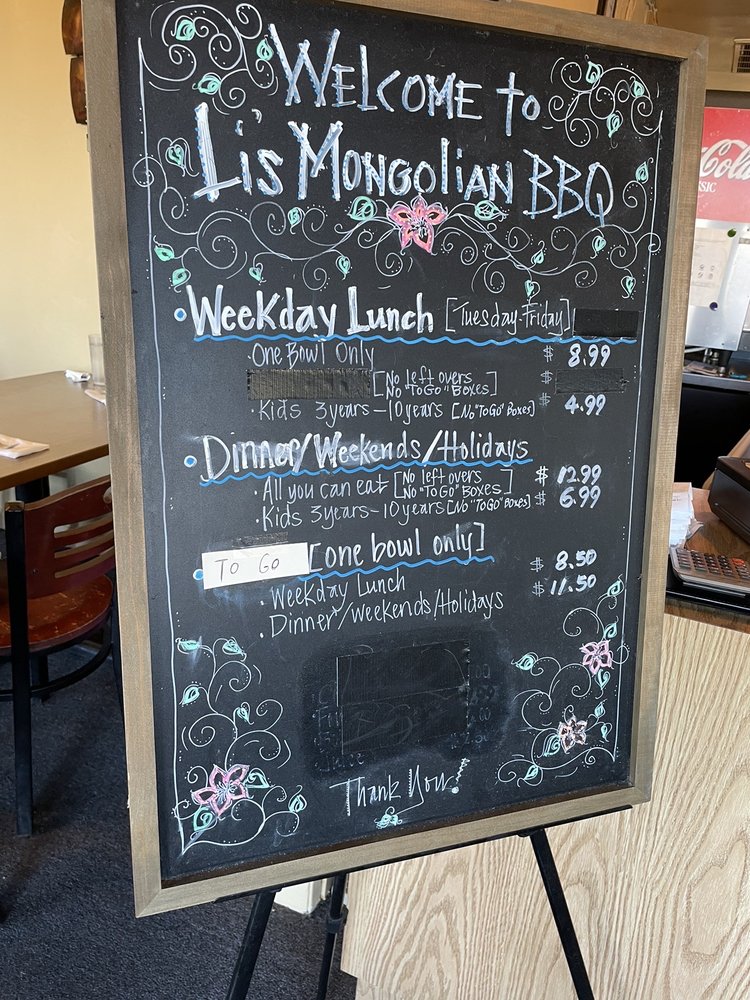 Welcome to
Li's Mongolian BBQ
Weekday Lunch [Tuesday-Friday]
One Bowl Only $ 8.99
[No left overs $
No "To Go" Boxes]
Kids 3years-10years [No "To Go" Boxes] $ 4.99
Dinner/Weekends/Holidays
All you can eat [No left overs $ 12.99
No "To Go" Boxes]
Kids 3years-10years [No "To Go" Boxes] $ 6.99
To Go [one bowl only]
Weekday Lunch $ 8.50
Dinner/weekends/Holidays $ 11.50
Juice
Thank You!
Cola
SIC